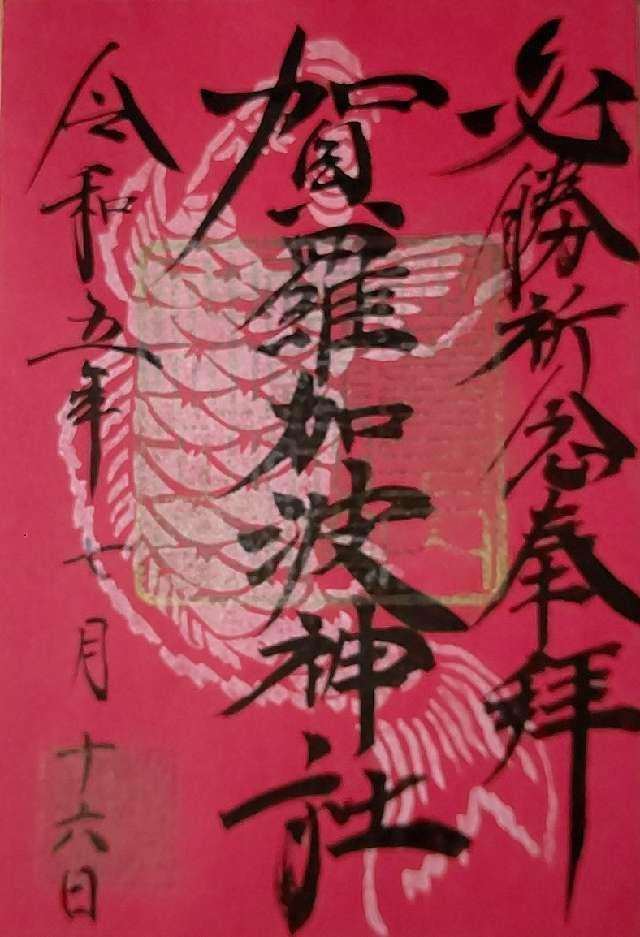 必勝祈念奉拝
賀羅加波神社
令和五年七月十六日